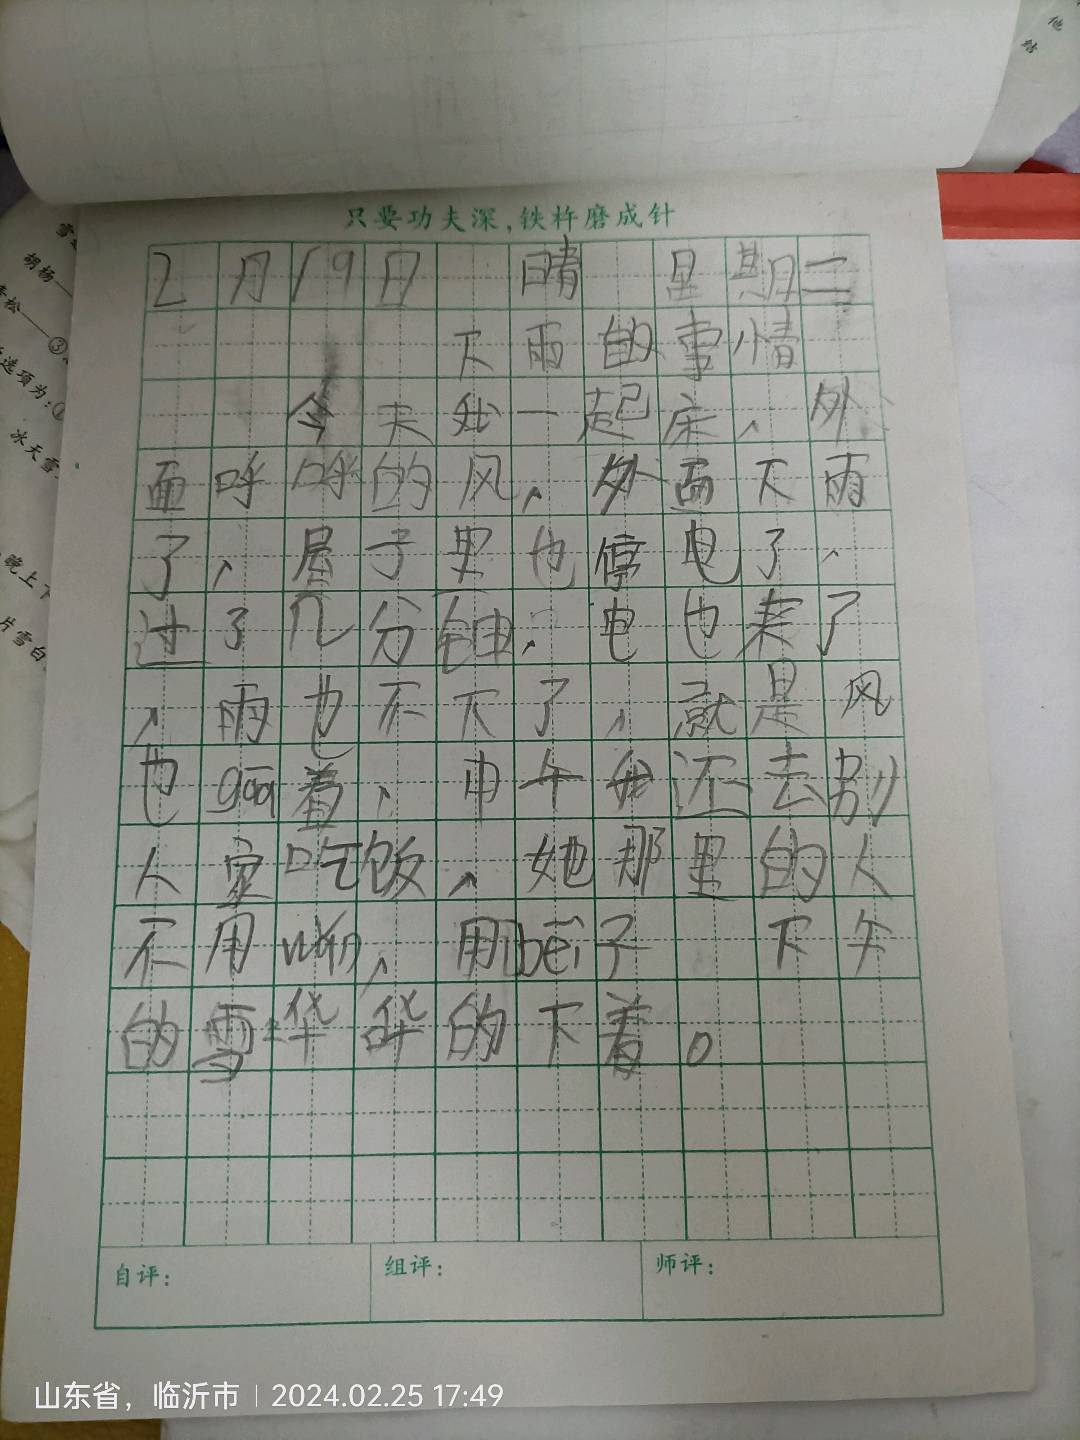 他
站
雪
胡杨——
青松——③
选项为:①
冰天雪
晚上下
片雪白
只要功夫深,铁杵磨成针
2月19日 晴 星期二
下雨的事情
今天我一起床,外
面呼呼的风,外面下雨
了,屋子里也停电了,
过了几分钟,电也来了
,雨也不下了,就是风
也guā着,中午我还去别
人家吃饭,她那里的人
不用wǎn,用bēi子 下午
的雪华华的下着。
自评:
组评:
师评:
山东省,临沂市 | 2024.02.25 17:49